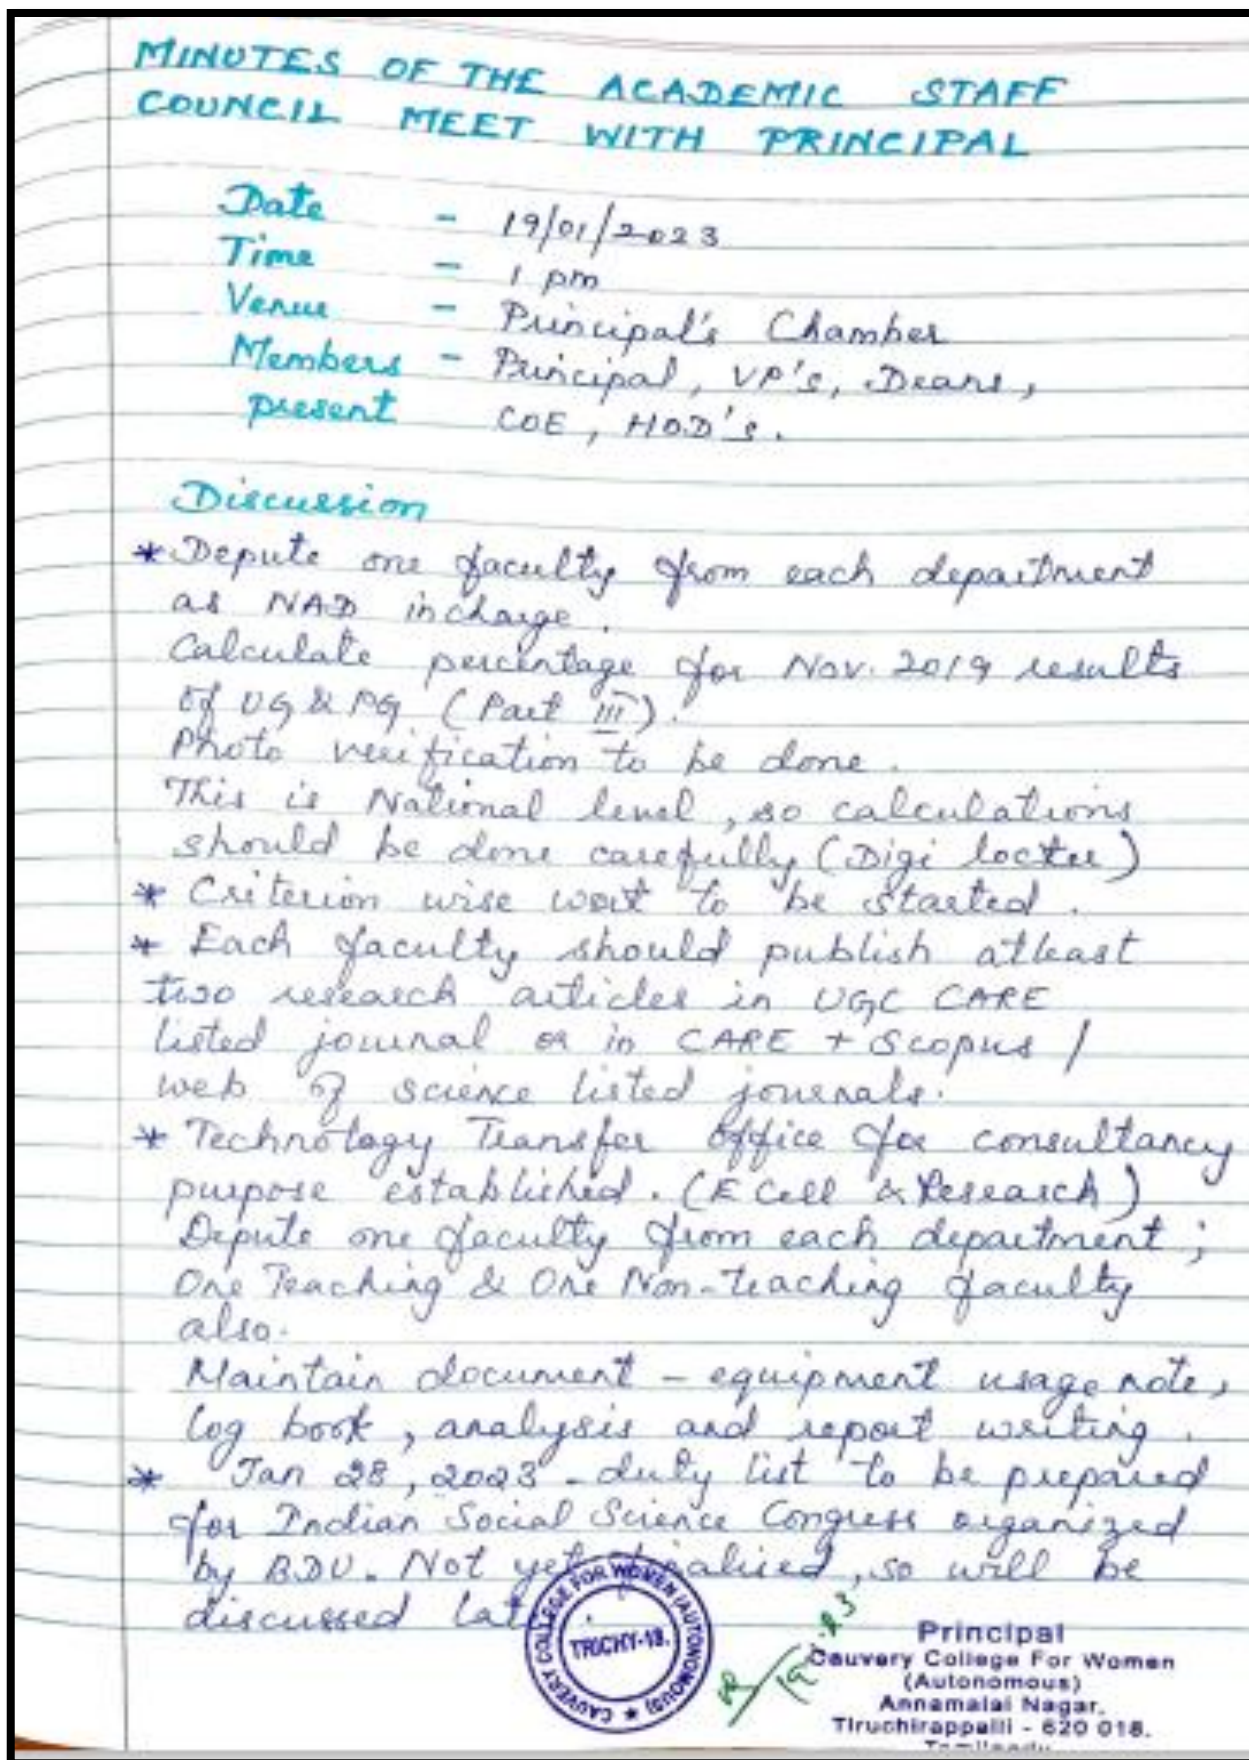 MINUTES OF THE ACADEMIC STAFF
COUNCIL MEET WITH PRINCIPAL
Date - 19/01/2023
Time - 1 pm
Venue - Principal's Chamber
Members - Principal, VP's, Deans,
present COE, HOD's.
Discussion
* Depute one faculty from each department
as NAD incharge.
Calculate percentage for Nov. 2019 results
of UG & PG (Part III).
Photo verification to be done.
This is National level, so calculations
should be done carefully (Digi locker)
* Criterion wise work to be started.
* Each faculty should publish atleast
two research articles in UGC CARE
listed journal or in CARE + Scopus /
web of science listed journals.
* Technology Transfer office for consultancy
purpose established. (E Cell & Research)
Depute one faculty from each department;
One Teaching & One Non-teaching faculty
also.
Maintain document - equipment usage note,
log book, analysis and report writing.
* Jan 28, 2023 - duty list to be prepared
for Indian Social Science Congress organized
by BDU. Not yet , so will be
discussed
CAUVERY COLLEGE FOR WOMEN (AUTONOMOUS)
TRICHY-18.
Principal
Cauvery College For Women
(Autonomous)
Annamalai Nagar,
Tiruchirappalli - 620 018.